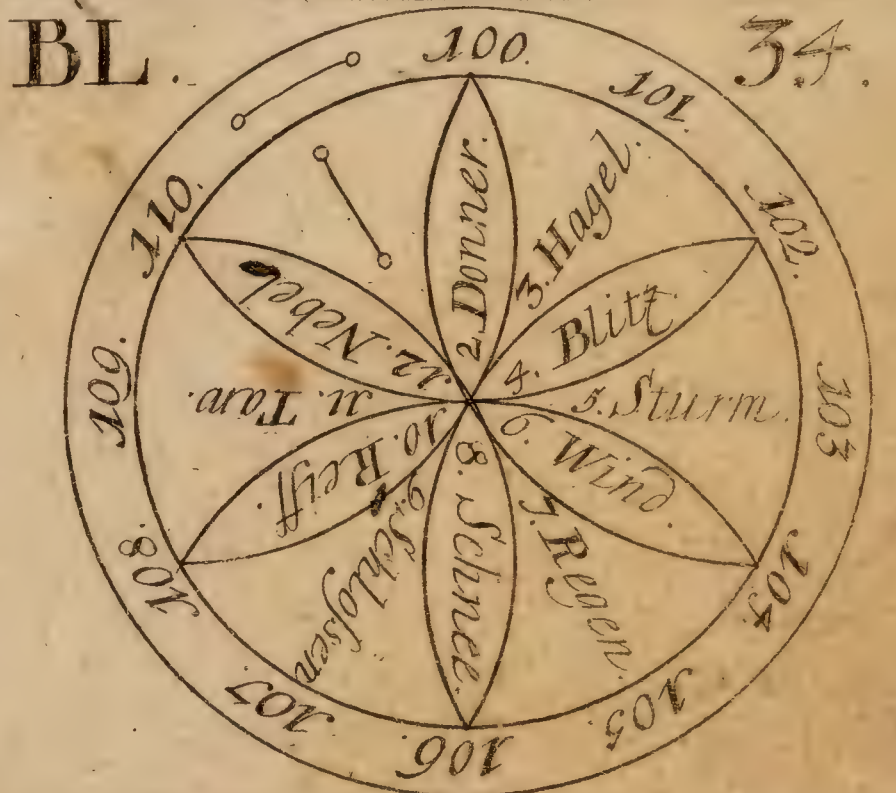 BL. 34.
100.
101.
102.
103
104.
105.
106.
107
108.
109.
110.
2. Donner.
3. Hagel.
4. Blitz
5. Sturm.
6. Wind.
7. Regen.
8. Schnee.
9. Schloſsen
10. Reiff.
11. Taw.
12. Nebel